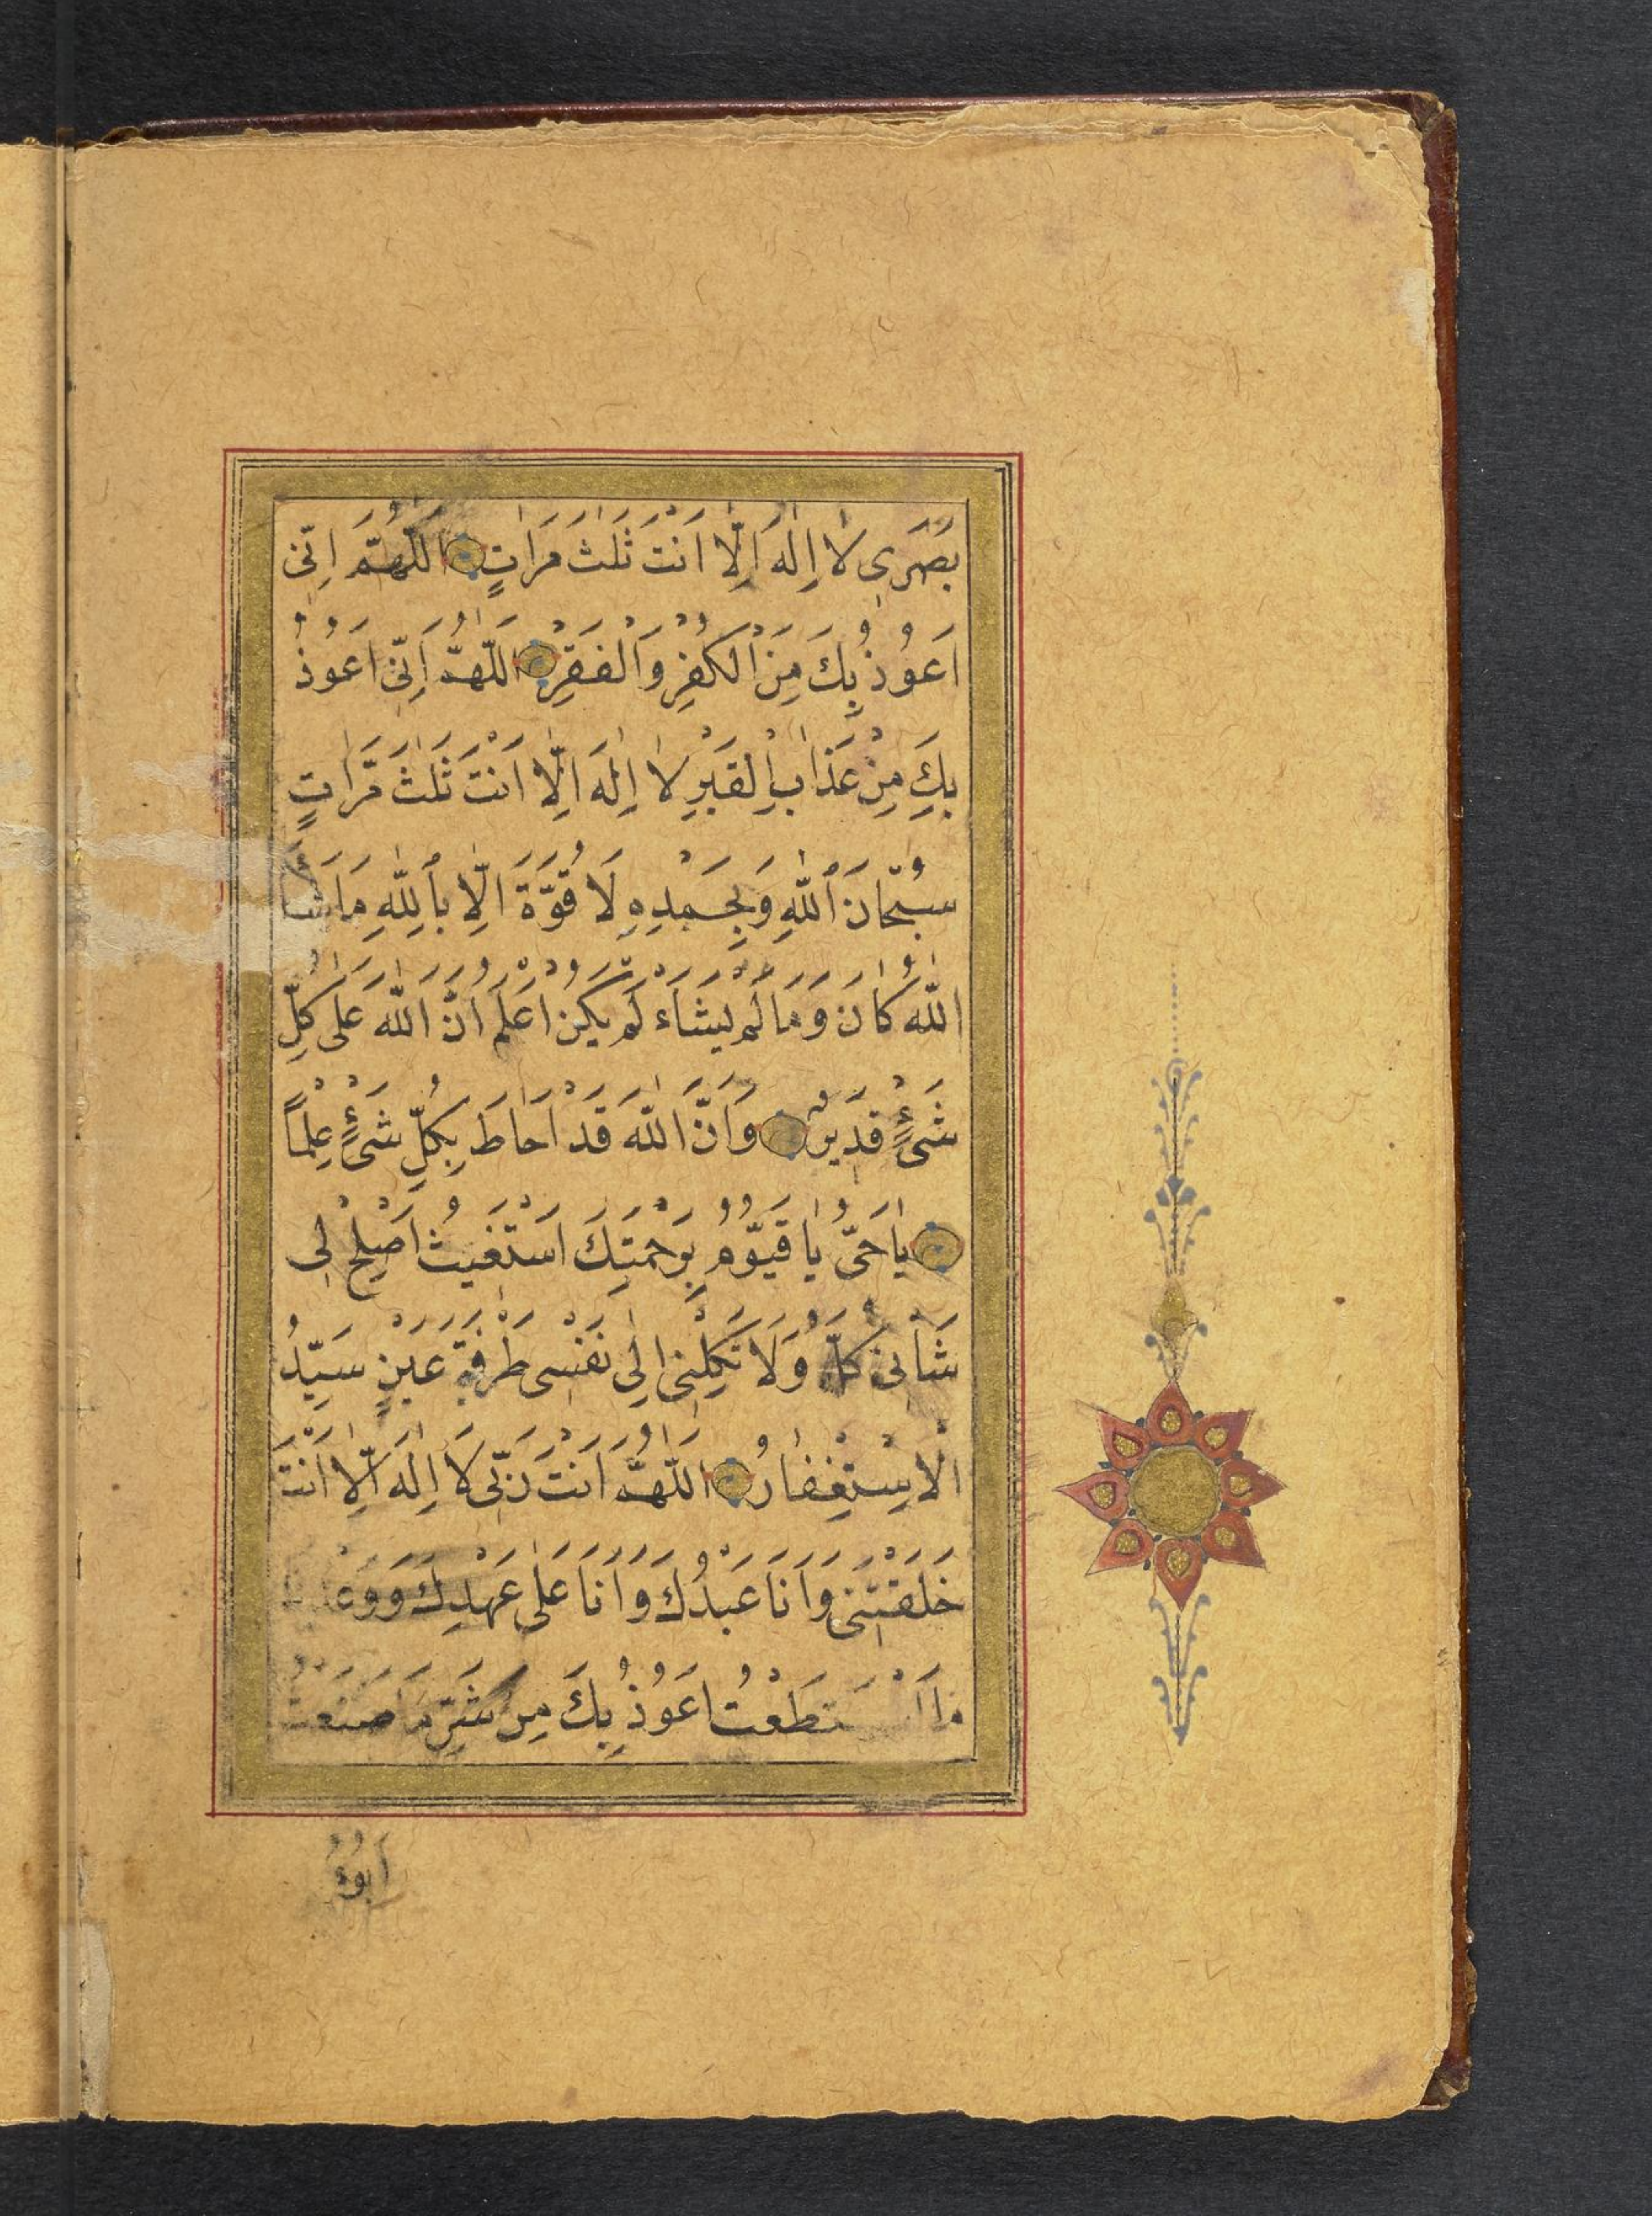 بَصَرَى لَا اِلٰهَ اِلَّا اَنْتَ ثَلٰثَ مَرَاتٍ اَللّٰهُمَّ اِنّى
اَعُوُذُ بِكَ مِنَ الْكُفْرِ وَالْفَقْرِ اَللّٰهُمَّ اِنّى اَعُوُذُ
بِكَ مِنْ عَذَابِ الْقَبْرِ لَا اِلٰهَ اِلَّا اَنْتَ ثَلٰثَ مَرَّاتٍ
سُبْحَانَ اللّٰهِ وَبِحَمْدِهِ لَا قُوَّةَ اِلَّا بِاللّٰهِ مَا شَاۤءَ
اللّٰهُ كَانَ وَمَا لَمْ يَشَاۤءْ لَمْ يَكُنْ اَعْلَمُ اَنَّ اللّٰهَ عَلٰى كُلِّ
شَىْءٍ قَدِيرٌ وَاَنَّ اللّٰهَ قَدْ اَحَاطَ بِكُلِّ شَىْءٍ عِلْمًا
يَا حَىُّ يَا قَيُّوُمُ بِرَحْمَتِكَ اَسْتَغِيثُ اَصْلِحْ لِى
شَأْنِى كُلَّهُ وَلَا تَكِلْنِى اِلٰى نَفْسِى طَرْفَةَ عَيْنٍ سَيِّدُ
الْاِسْتِغْفَارُ اَللّٰهُمَّ اَنْتَ رَبِّى لَا اِلٰهَ اِلَّا اَنْتَ
خَلَقْتَنِى وَاَنَا عَبْدُكَ وَاَنَا عَلٰى عَهْدِكَ وَوَعْدِكَ
مَا اسْتَطَعْتُ اَعُوُذُ بِكَ مِنْ شَرِّ مَا صَنَعْتُ
اَبُوُءُ